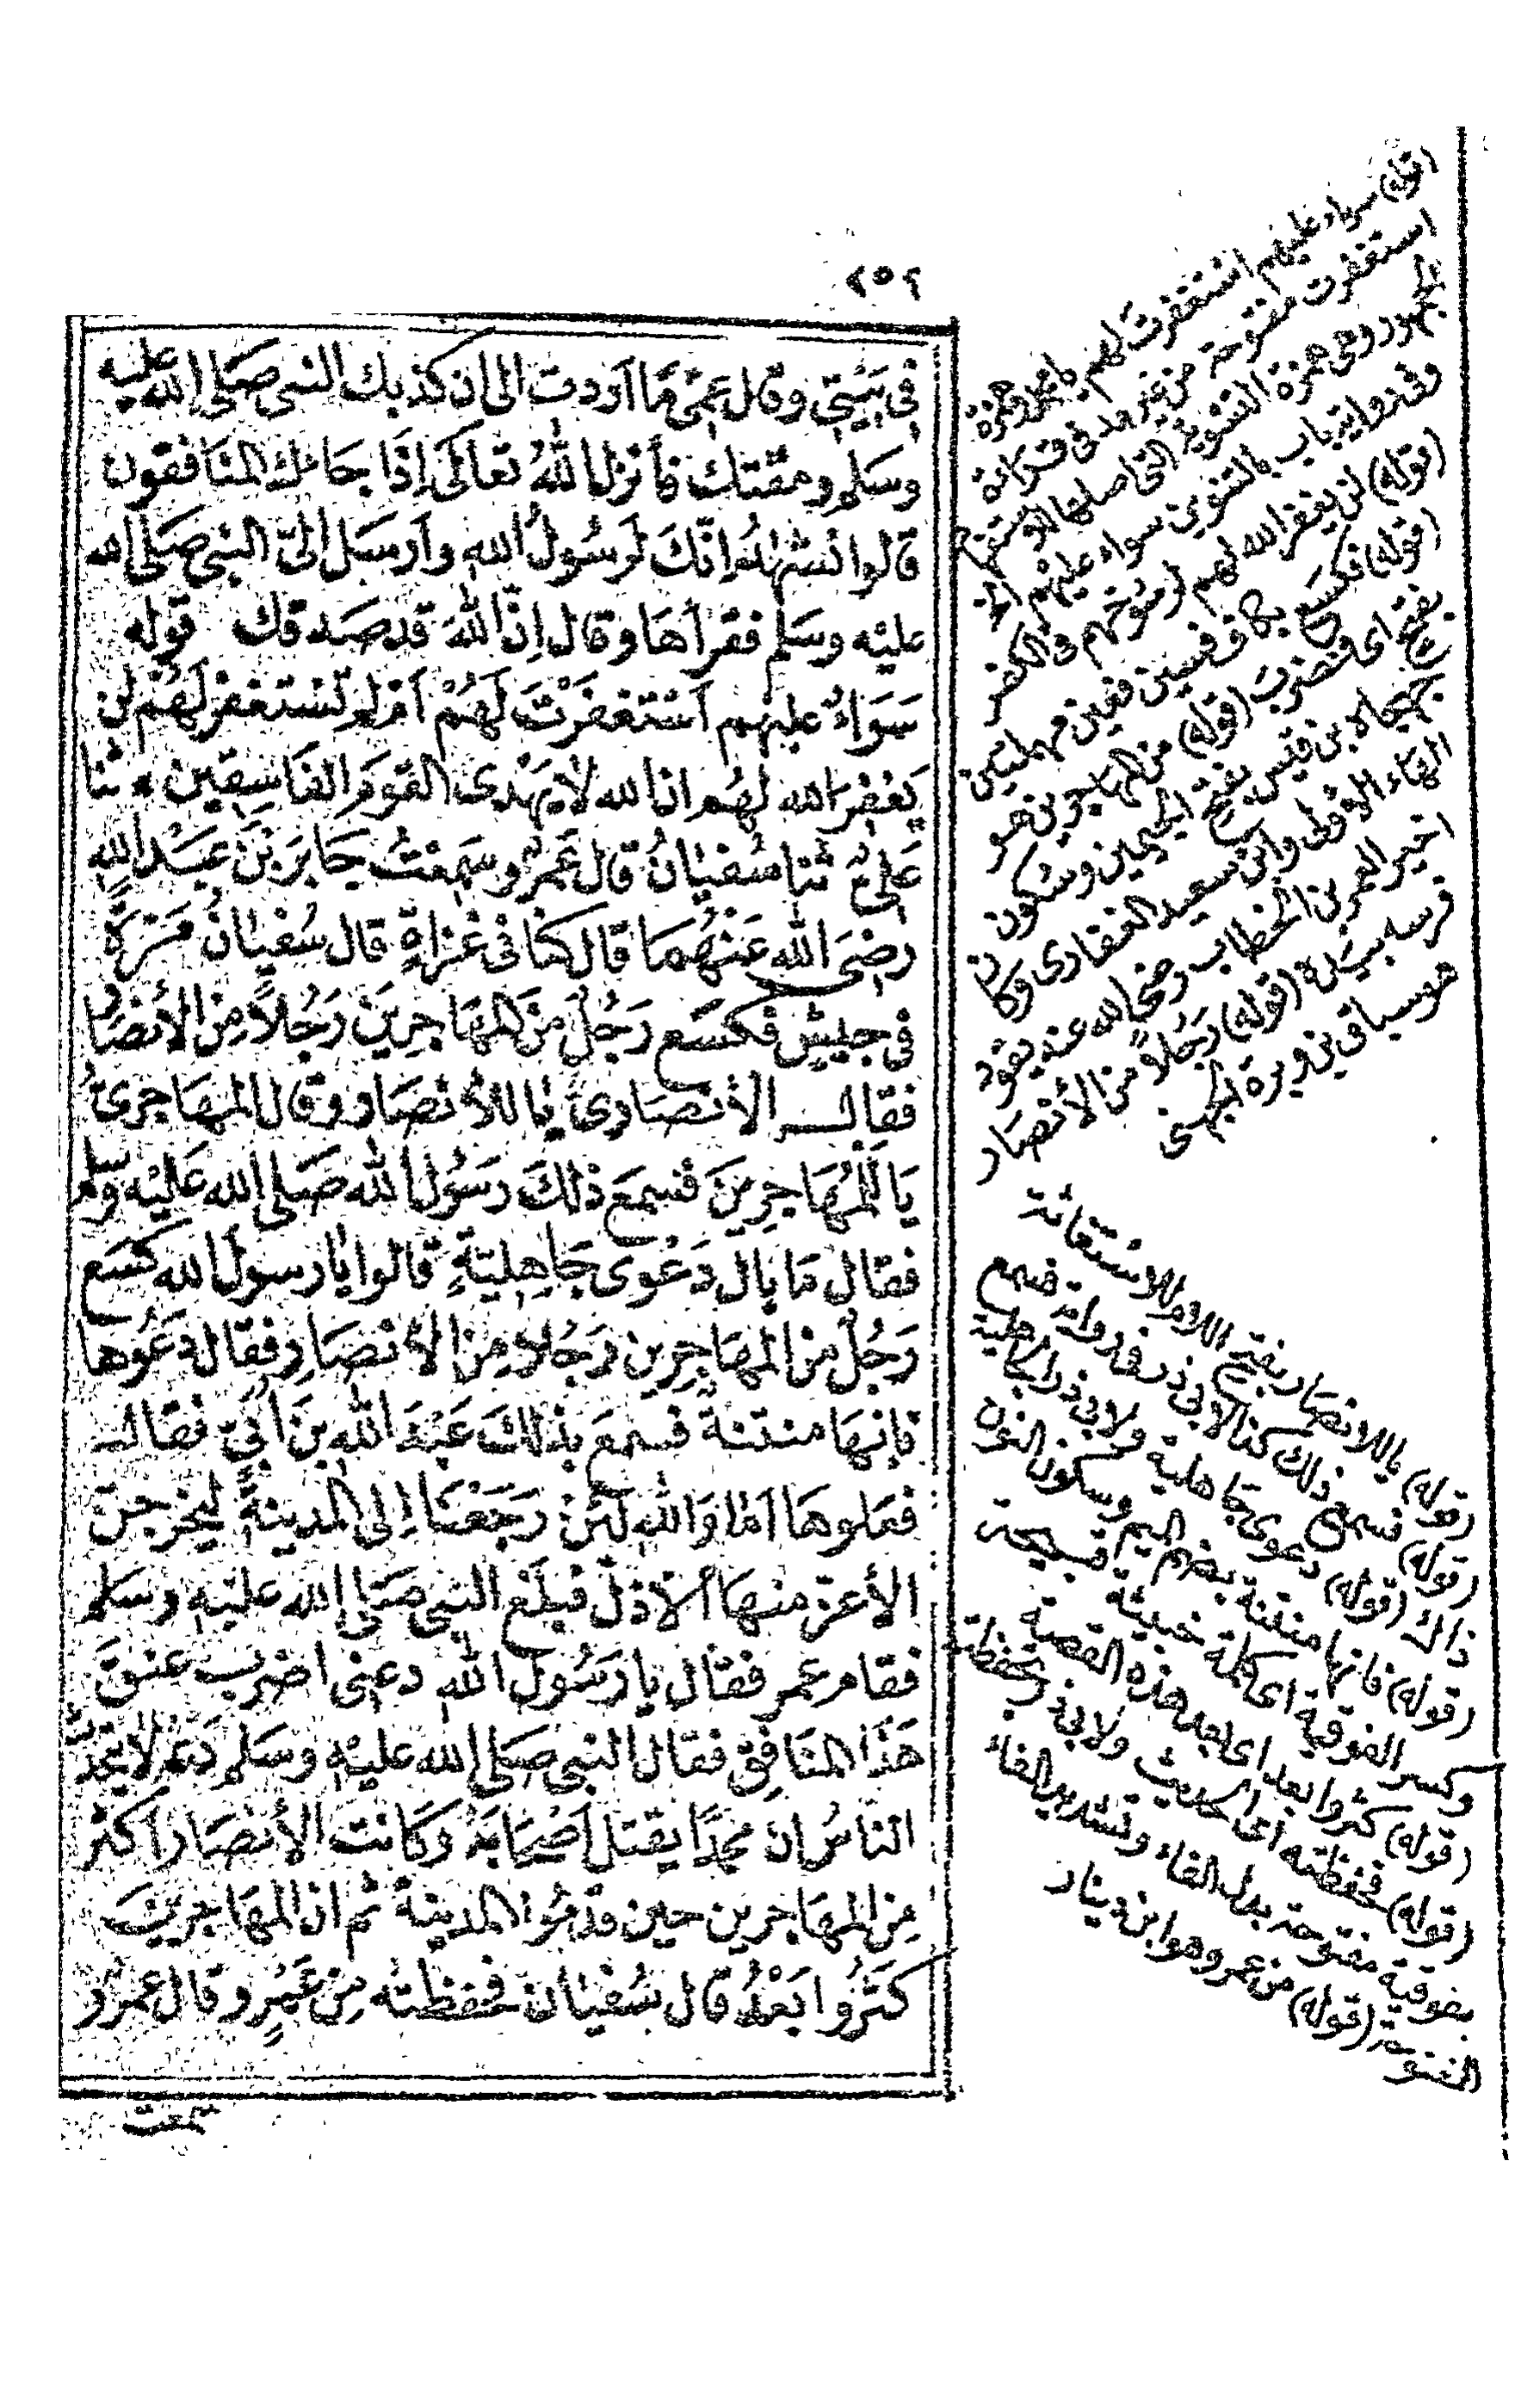 ٢٥٢
في بيتي وقال عمي ما أردت الى ان كذبك النبي صلى الله عليه
وسلم ومقتك فأنزل الله تعالى اذا جاءك المنافقون
قالوا نشهد انك لرسول الله وأرسل الي النبي صلى الله
عليه وسلم فقرأها وقال ان الله قد صدقك قوله
سواء عليهم استغفرت لهم أم لم تستغفر لهم لن
يغفر الله لهم ان الله لا يهدى القوم الفاسقين • ثنا
علي ثنا سفيان قال عمرو سمعت جابر بن عبد الله
رضى الله عنهما قال كنا في غزاة قال سفيان مرة
في جيش فكسع رجل من المهاجرين رجلا من الأنصار
فقال الأنصارى يا للأنصار وقال المهاجرى
يا للمهاجرين فسمع ذلك رسول الله صلى الله عليه وسلم
فقال ما بال دعوى جاهلية قالوا يا رسول الله كسع
رجل من المهاجرين رجلا من الأنصار فقال دعوها
فانها منتنة فسمع بذلك عبد الله بن أبي فقال
فعلوها أما والله لئن رجعنا الى المدينة ليخرجن
الأعز منها الأذل فبلغ النبي صلى الله عليه وسلم
فقام عمر فقال يا رسول الله دعنى اضرب عنق
هذا المنافق فقال النبي صلى الله عليه وسلم دعه لا يتحدث
الناس ان محمدا يقتل أصحابه وكانت الأنصار أكثر
من المهاجرين حين قدموا المدينة ثم ان المهاجرين
كثروا بعد قال سفيان فحفظته من عمرو قال عمرو
سمعت
(قوله) سواء عليهم استغفرت لهم بهمزة
استغفرت مفتوحة من غير مد في قراءة
الجمهور وهى همزة التسوية التى أصلها الاستفهام
وفى رواية باب بالتنوين سواء عليهم الخ
(قوله) لن يغفر الله لهم لرسوخهم في الكفر
(قوله) فكسع بكاف فسين فعين مهملتين
بفتح أى ضرب (قوله) من المهاجرين هو
جهجاه بن قيس بفتح الجيمين وسكون
الهاء الأولى وابن سعيد الغفارى وكان
أجير العمر بن الخطاب رضى الله عنه يقود
فرسه بيده (قوله) رجلا من الأنصار
هو سنان بن وبرة الجهنى
(قوله) يا للانصار بفتح اللام للاستغاثة
(قوله) فسمع ذلك كذا لابى ذر وفى رواية فسمع
ذاك (قوله) دعوى جاهلية ولابى ذر الجاهلية
(قوله) فانها منتنة بضم الميم وسكون النون
وكسر الفوقية أى كلمة خبيثة قبيحة
(قوله) كثروا بعد أى بعد هذه القصة
(قوله) فحفظته أى الحديث ولابى ذر تحفظته
بفوقية مفتوحة بدل الفاء وتشديد الفاء
المفتوحة (قوله) من عمرو هو ابن دينار